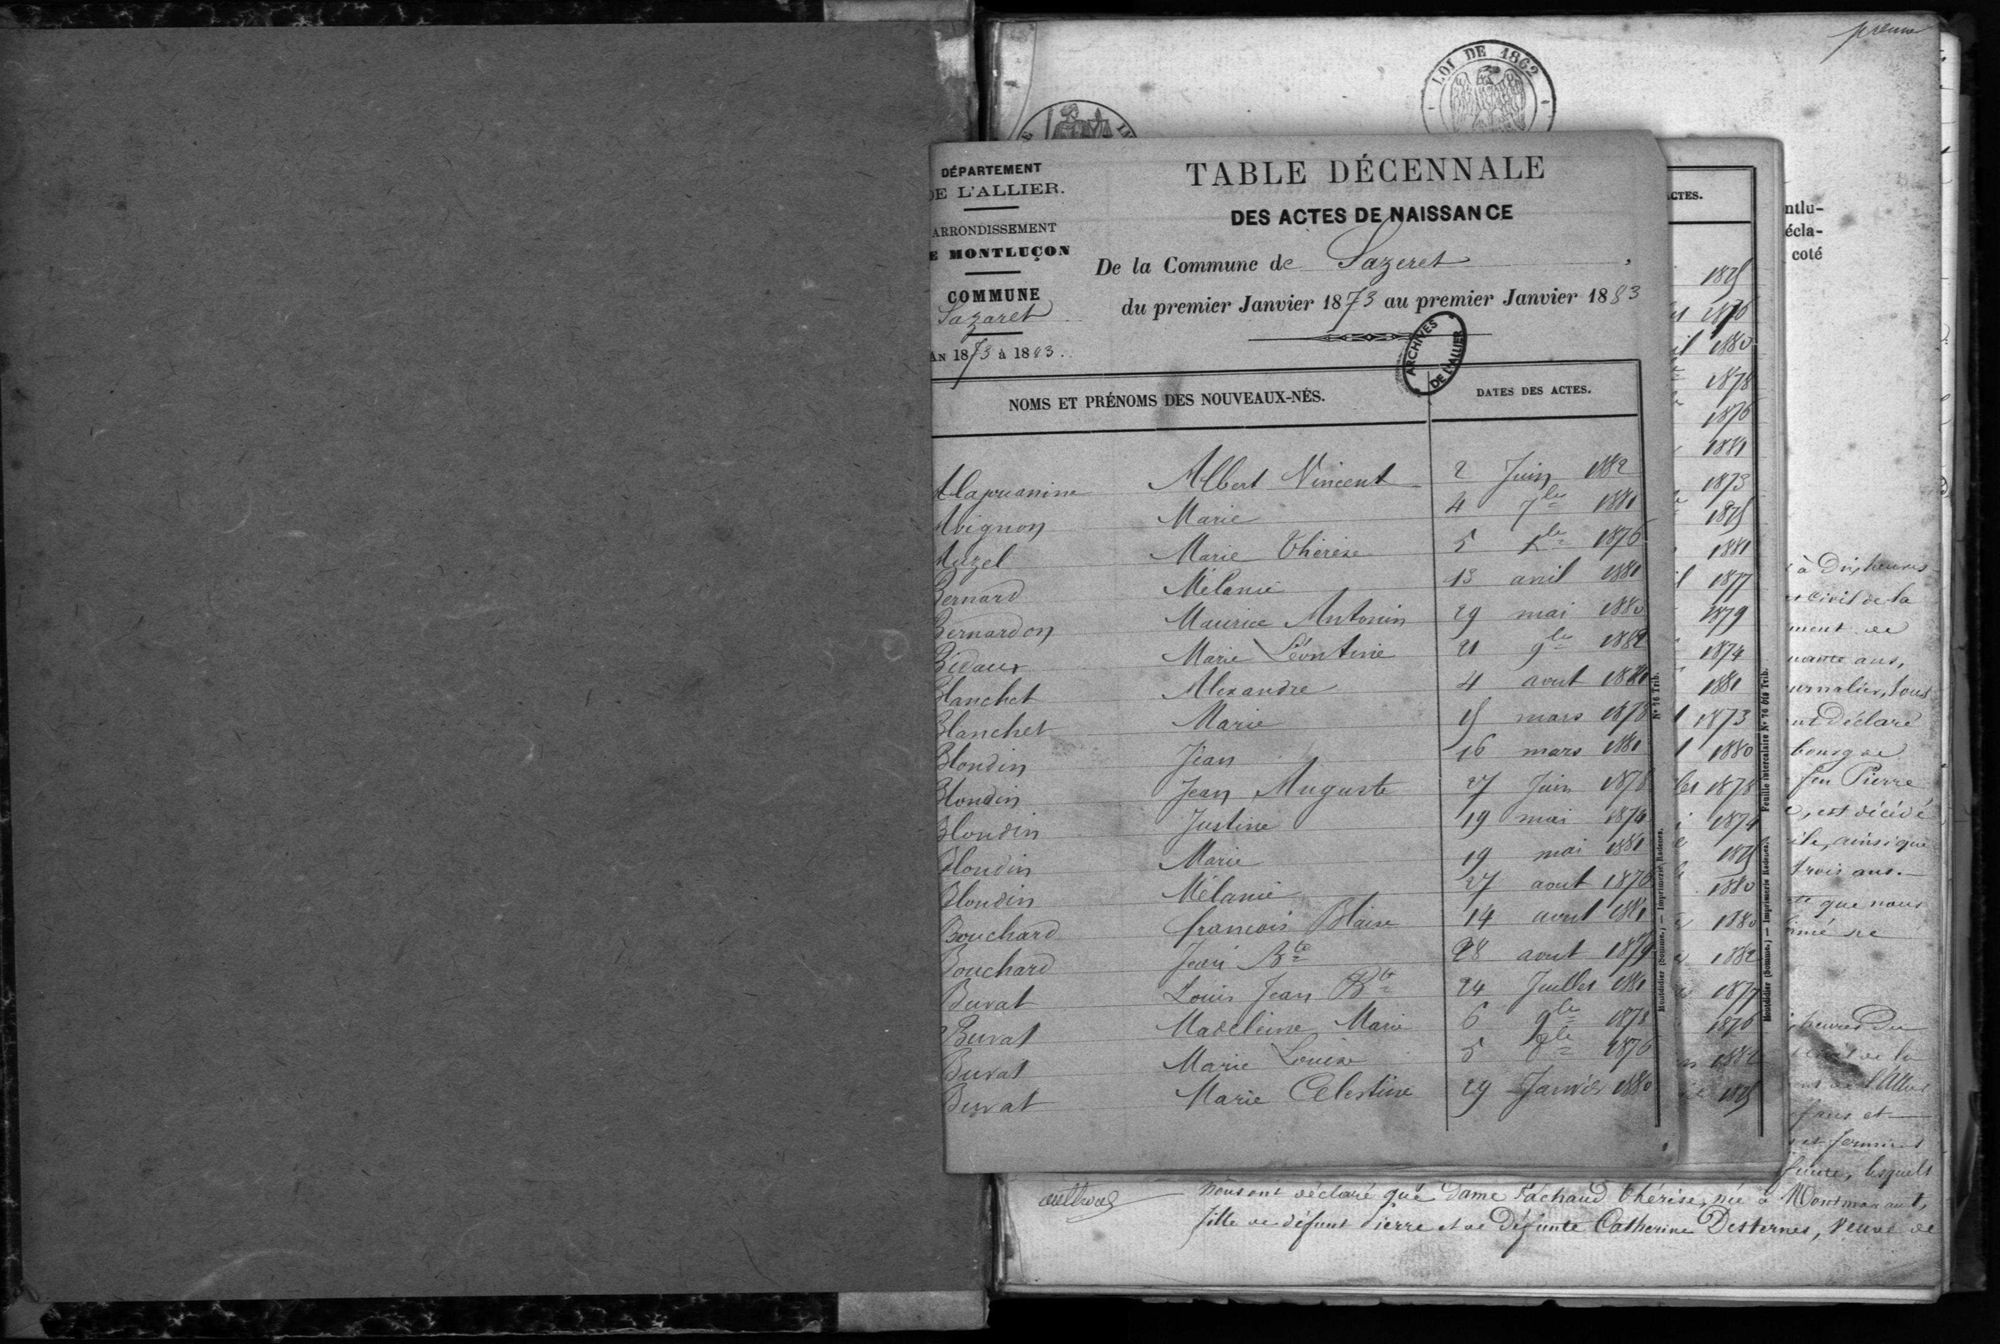 LOI DE 1862
DÉPARTEMENT
DE L'ALLIER.
ARRONDISSEMENT
E MONTLUÇON
COMMUNE
Sazaret
AN 1873 à 1883.
TABLE DÉCENNALE
DES ACTES DE NAISSANCE
De la Commune de Sazeret
du premier Janvier 1873 au premier Janvier 1883
ARCHIVES DE L'ALLIER
NOMS ET PRÉNOMS DES NOUVEAUX-NÉS. DATES DES ACTES.
Alajouanine Albert Vincent 2 Juin 1882
Avignon Marie 4 7bre 1881
Auzel Marie Thérèse 5 Xbre 1876
Bernard Mélanie 13 avril 1881
Bernardon Maurice Antonin 29 mai 1880
Bidaux Marie Léontine 21 9bre 1882
Blanchet Alexandre 4 aout 1881
Blanchet Marie 15 mars 1878
Blondin Jean 16 mars 1881
Blondin Jean Auguste 27 Juin 1878
Blondin Justine 19 mai 1874
Blondin Marie 19 mai 1881
Blondin Mélanie 27 aout 1876
Bouchard françois Blaise 14 avril 1881
Bouchard Jean Bte 28 aout 1879
Buvat Louis Jean Bte 24 Juillet 1881
Buvat Madeleine Marie 6 9bre 1878
Buvat Marie Louise 5 1876
Buvat Marie Célestine 29 Janvier 1880
Montdidier (Somme.) — Imprimerie Radenez.
N° 76 Trib.
ACTES.
1875
1876
1880
1878
1876
1881
1873
1875
1881
1877
1879
1874
1881
1873
1880
1878
1874
1875
1880
1880
1882
1877
1876
1882
1875
Montdidier (Somme.) — Imprimerie Radenez.
Feuille intercalaire N° 76 bis Trib.
ntlu-
écla-
coté
à Dix heures
civil de la
ment de
uante ans,
urnalier, tous
ont déclaré
bourg de
feu Pierre
est décédé
ainsi que
trois ans.
que nous
heures du
de la
et
lesquels
nous ont déclaré que Dame Pachaud Thérèse, née à Montmarault,
fille de défunt Pierre et de Défunte Catherine Desternes, veuve de